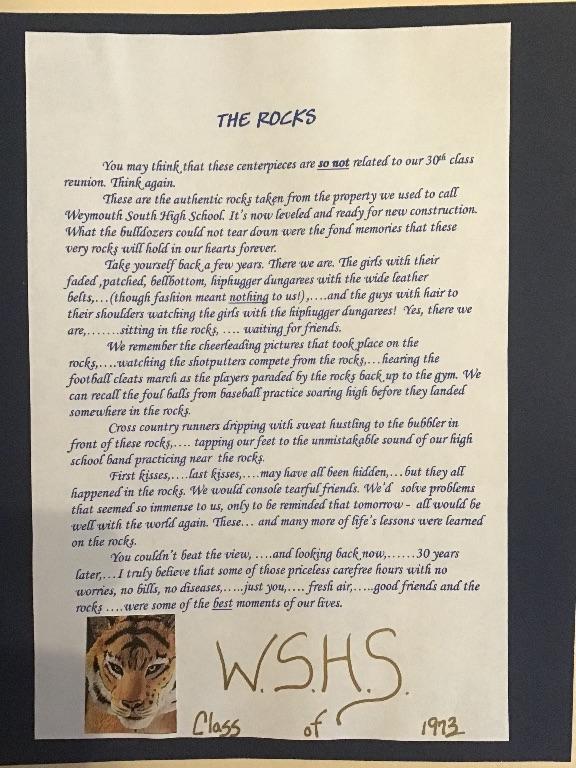 THE ROCKS
You may think that these centerpieces are so not related to our 30th class
reunion. Think again.
These are the authentic rocks taken from the property we used to call
Weymouth South High School. It's now leveled and ready for new construction.
What the bulldozers could not tear down were the fond memories that these
very rocks will hold in our hearts forever.
Take yourself back a few years. There we are. The girls with their
faded ,patched, bellbottom, hiphugger dungarees with the wide leather
belts,...(though fashion meant nothing to us!),....and the guys with hair to
their shoulders watching the girls with the hiphugger dungarees! Yes, there we
are,.......sitting in the rocks, .... waiting for friends.
We remember the cheerleading pictures that took place on the
rocks,....watching the shotputters compete from the rocks,...hearing the
football cleats march as the players paraded by the rocks back up to the gym. We
can recall the foul balls from baseball practice soaring high before they landed
somewhere in the rocks.
Cross country runners dripping with sweat hustling to the bubbler in
front of these rocks,.... tapping our feet to the unmistakable sound of our high
school band practicing near the rocks.
First kisses,....last kisses,....may have all been hidden,...but they all
happened in the rocks. We would console tearful friends. We'd solve problems
that seemed so immense to us, only to be reminded that tomorrow - all would be
well with the world again. These... and many more of life's lessons were learned
on the rocks.
You couldn't beat the view, ....and looking back now,......30 years
later,...I truly believe that some of those priceless carefree hours with no
worries, no bills, no diseases,.....just you,.... fresh air,.....good friends and the
rocks ....were some of the best moments of our lives.
W.S.H.S.
Class of 1973